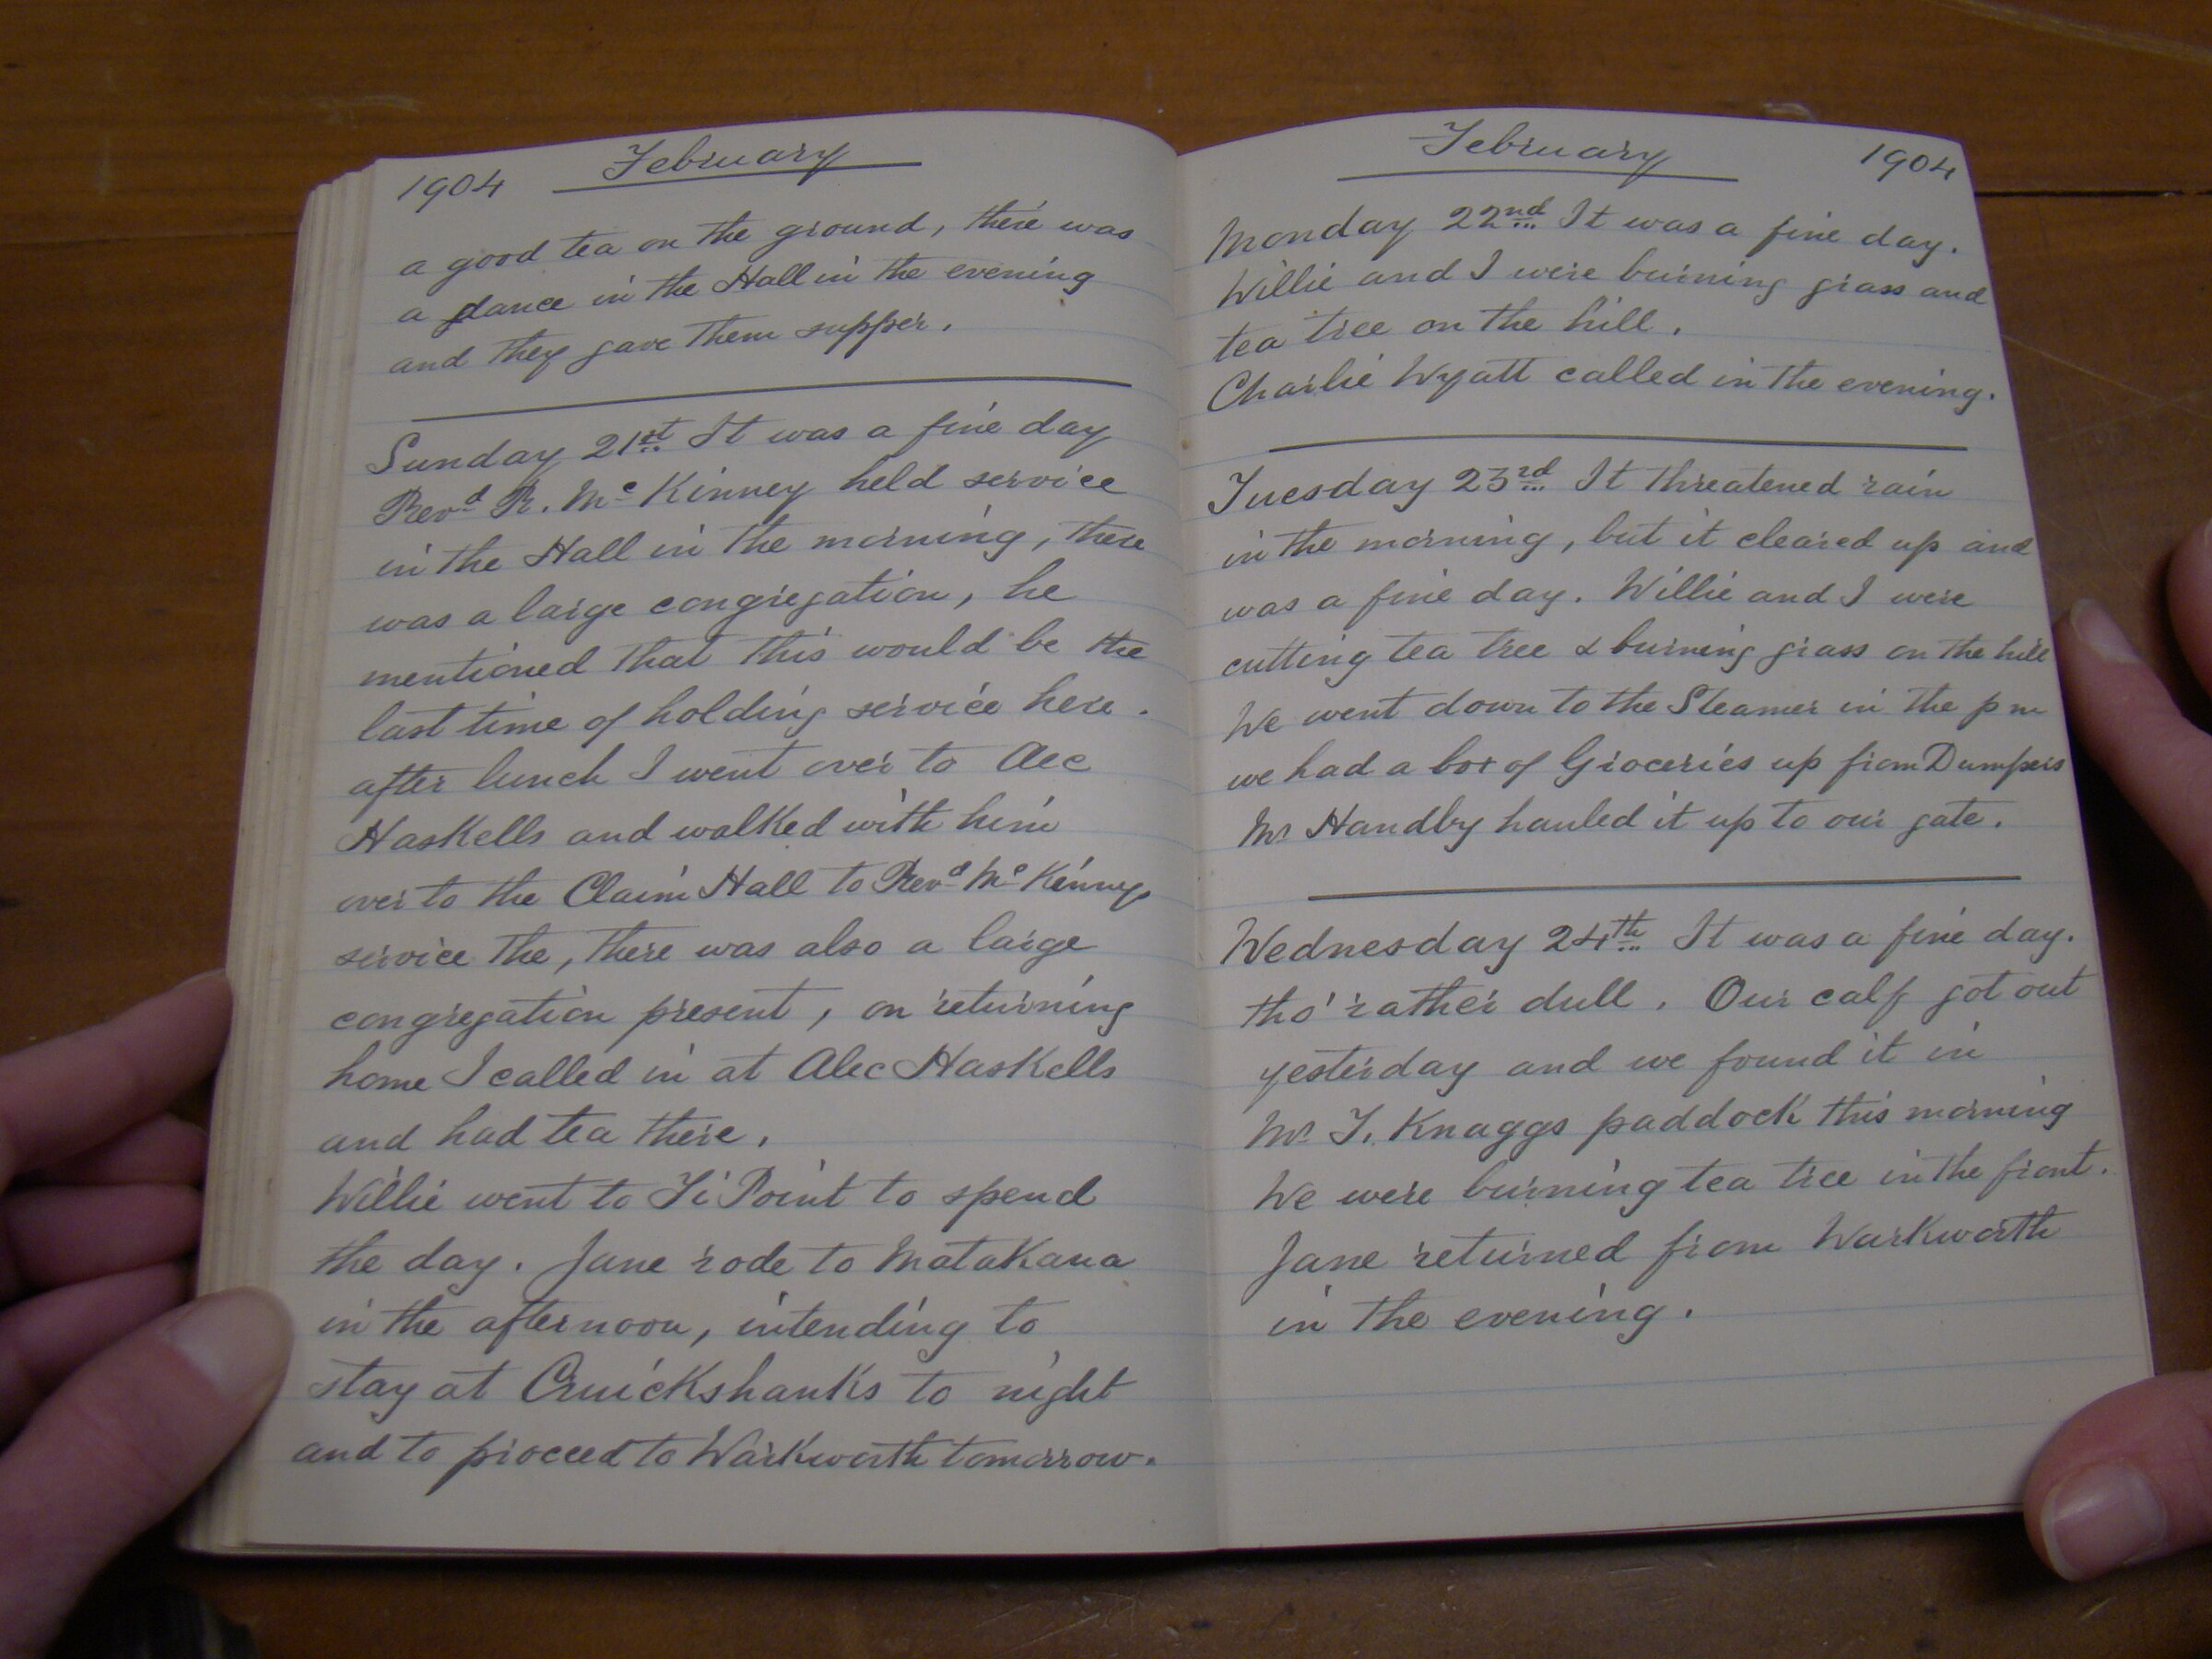 1904 February
a good tea on the ground, there was
a dance in the Hall in the evening
and they gave them supper.
Sunday 21st It was a fine day
Revd R. Mc Kinney held service
in the Hall in the morning, there
was a large congregation, he
mentioned that this would be the
last time of holding service here.
after lunch I went over to Alec
Haskells and walked with him
over to the Claim Hall to Revd Mc Kinneys
service the, there was also a large
congregation present, on returning
home I called in at Alec Haskells
and had tea there.
Willie went to Ti Point to spend
the day. Jane rode to Matakana
in the afternoon, intending to
stay at Cruickshanks to night
and to proceed to Warkworth tomorrow.
February 1904
Monday 22nd It was a fine day.
Willie and I were burning grass and
tea tree on the hill.
Charlie Wyatt called in the evening.
Tuesday 23rd It threatened rain
in the morning, but it cleared up and
was a fine day. Willie and I were
cutting tea tree & burning grass on the hill
We went down to the Steamer in the pm
we had a box of Groceries up from Dumpers
Mr Handby hauled it up to our gate.
Wednesday 24th It was a fine day.
tho' rather dull. Our calf got out
yesterday and we found it in
Mr T. Knaggs paddock this morning
We were burning tea tree in the front.
Jane returned from Warkworth
in the evening.